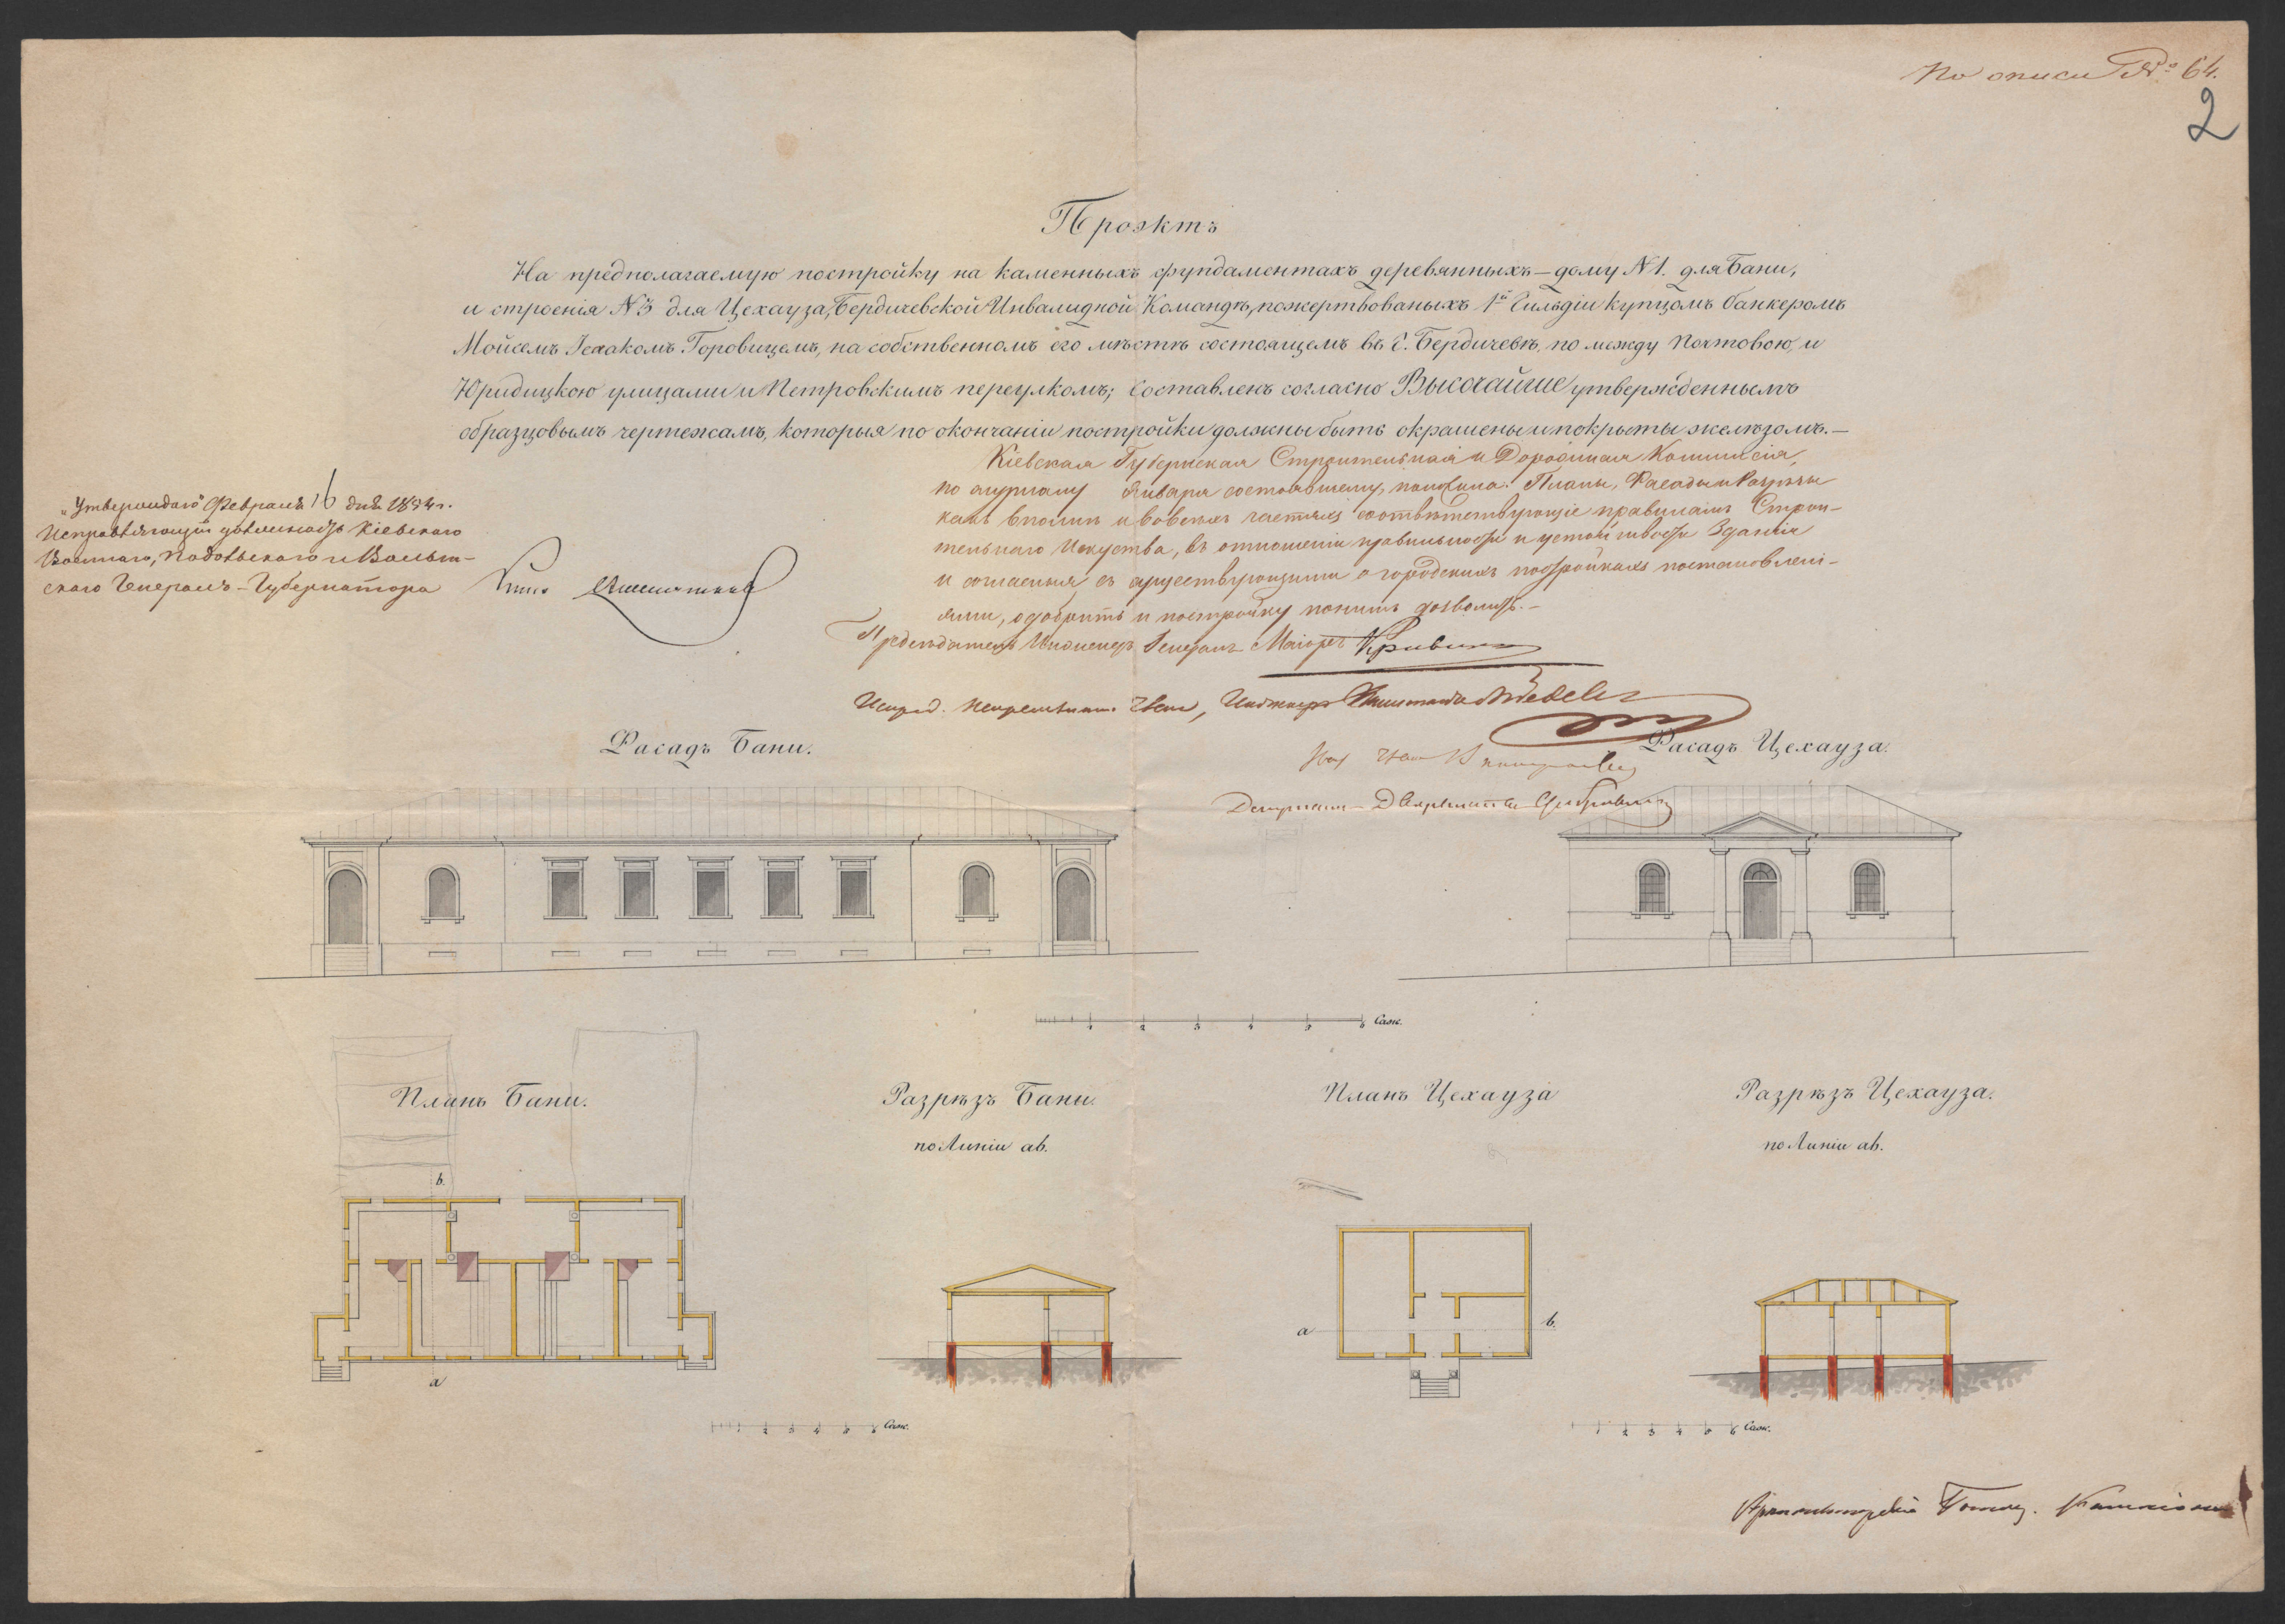 По описи № 64.
2
Проэктъ
На предполагаемую постройку на каменныхъ фундаментахъ деревянныхъ – дому №1. для Бани,
и строенія №3 для Цехауза, Бердичевской Инвалидной Командѣ, пожертвованыхъ 1й Гильдіи купцомъ банкеромъ
Мойсемъ Исаакомъ Горовицемъ, на собственномъ его мѣстѣ состоящемъ въ Г. Бердичевѣ, по между Почтовою, и
Юридицкою улицами и Петровскимъ переулкомъ; составленъ согласно Высочайше утвержденнымъ
образцовымъ чертежамъ, которыя по окончаніи постройки должны быть окрашены и покрыты желѣзомъ. –
Кіевская Губернская Строительная и Дорожная Коммисія,
по журналу Января состоявшемуся, планы, Фасады и Разрѣзы
какъ вполнѣ и во всехъ частяхъ соотвѣтствующіе правиламъ Строи-
тельнаго Искуства, въ отношеніи правильности и устойчивости Зданія
и согласныя съ существующими о городскихъ постройкахъ постановлені-
ями, одобрить и постройку дозволить. –
Предсѣдатель Инженеръ Генералъ Маіоръ
„Утверждаю" Февраля 16 дня 1854 г.
Исправляющій должность Кіевскаго
Военнаго, Подольскаго и Волын-
скаго Генералъ – Губернатора
Князь
Исправ. Членъ, Инженеръ
Фасадъ Бани.
Фасадъ Цехауза.
1 2 3 4 5 6 Саж.
Планъ Бани.
Разрѣзъ Бани.
по Линіи ab.
Планъ Цехауза
Разрѣзъ Цехауза.
по Линіи ab.
b.
a
a
b.
1 2 3 4 5 6 Саж.
1 2 3 4 5 6 Саж.